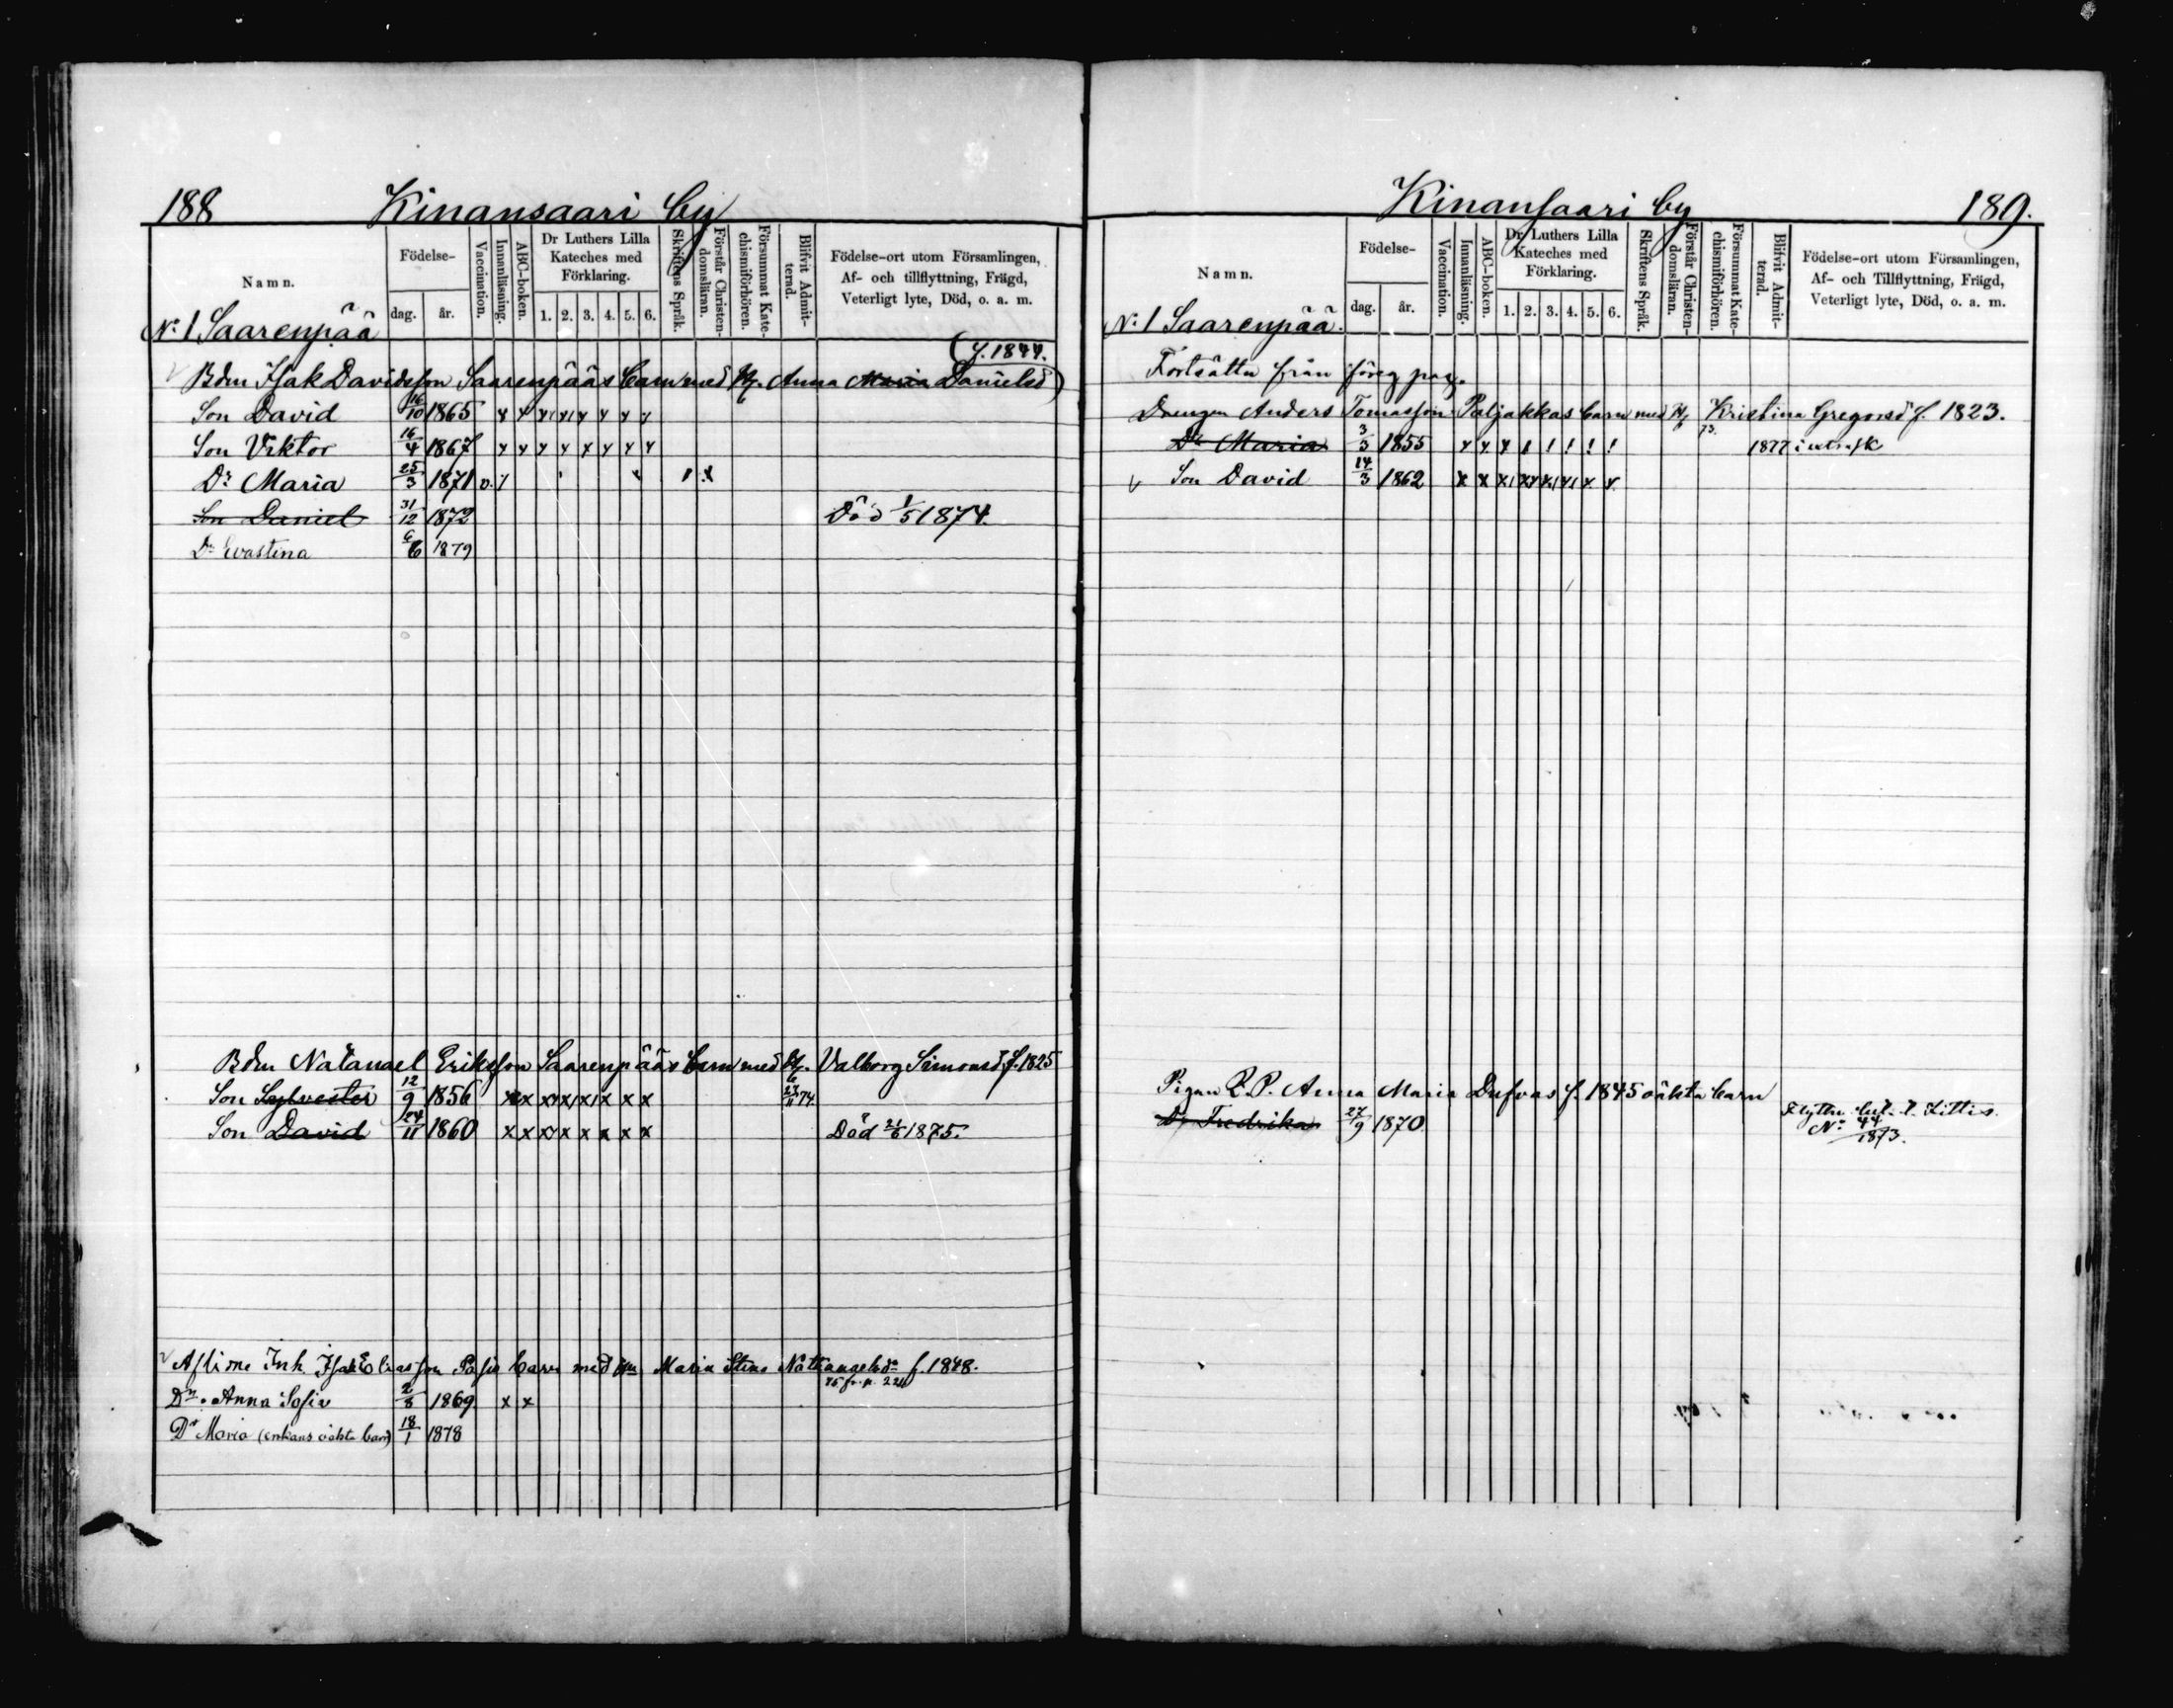 188 Kinansaari by
Namn. Födelse- dag. år. Vaccination. Innanläsning. ABC-boken. Dr Luthers Lilla Kateches med Förklaring. 1. 2. 3. 4. 5. 6. Skriftens Språk. Förstår Christendomsläran. Försummat Katechismiförhören. Blifvit Admitterad. Födelse-ort utom Församlingen, Af- och tillflyttning, Frägd, Veterligt lyte, Död, o. a. m.
No 1 Saarenpää
(f. 1844.
Bdn Isak Davidsson Saarenpääs barn med H. Anna Maria Danielsd)
Son David 16/10 1865 x x x x x x x x
Son Viktor 16/4 1867 x x x x x x x x
Dr Maria 25/3 1871 v. x
Son Daniel 31/12 1872 Död 1/5 1874.
Dr Evastina 6/6 1879
Bdn Natanael Eriksson Saarenpääs barn med H. Valborg Simonsd. f. 1825
Son Sylvester 12/9 1856 x x x x x x x x 74.
Son David 24/11 1860 x x x x x x x x Död 21/6 1875.
Aflidne Inh. Isak Eliasson barn med Maria Stina f. 1848.
Dr. Anna Sofia 2/8 1869 x x
Dr Maria (enkans oäkta barn) 18/1 1878
Kinansaari by 189.
Namn. Födelse- dag. år. Vaccination. Innanläsning. ABC-boken. Dr Luthers Lilla Kateches med Förklaring. 1. 2. 3. 4. 5. 6. Skriftens Språk. Förstår Christendomsläran. Försummat Katechismiförhören. Blifvit Admitterad. Födelse-ort utom Församlingen, Af- och Tillflyttning, Frägd, Veterligt lyte, Död, o. a. m.
No 1 Saarenpää.
Fortsättn från föreg pag.
Drengen Anders Tomasson Paljakkas barn med H. Kristina Gregorsd f. 1823.
Dr Maria 3/3 1855 x x x 1877
Son David 14/3 1862 x x x x x x x x
Pigan Anna Maria Dufvas f. 1845 oäkta barn
Dr Fredrika 27/9 1870 Flyttn bet. t. Itittis. No 44 1873.